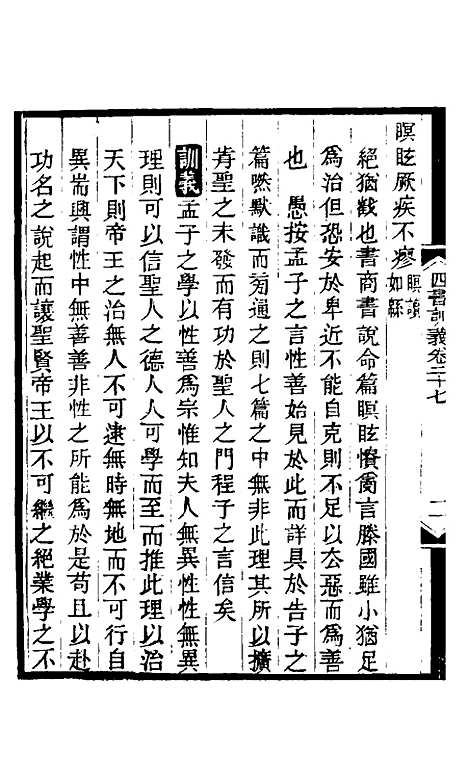 瞑眩厥疾不瘳瞑讀如縣
絕猶截也書商書說命篇瞑眩憒亂言滕國雖小猶足
爲治但恐安於卑近不能自克則不足以去惡而爲善
也　愚按孟子之言性善始見於此而詳具於告子之
篇然默識而旁通之則七篇之中無非此理其所以擴
前聖之未發而有功於聖人之門程子之言信矣
訓義孟子之學以性善爲宗惟知夫人無異性性無異
理則可以信聖人之德人人可學而至而推此理以治
天下則帝王之治無人不可逮無時無地而不可行自
異耑興謂性中無善善非性之所能爲於是苟且以赴
功名之說起而讓聖賢帝王以不可繼之絕業學之不
四書訓義卷二十七